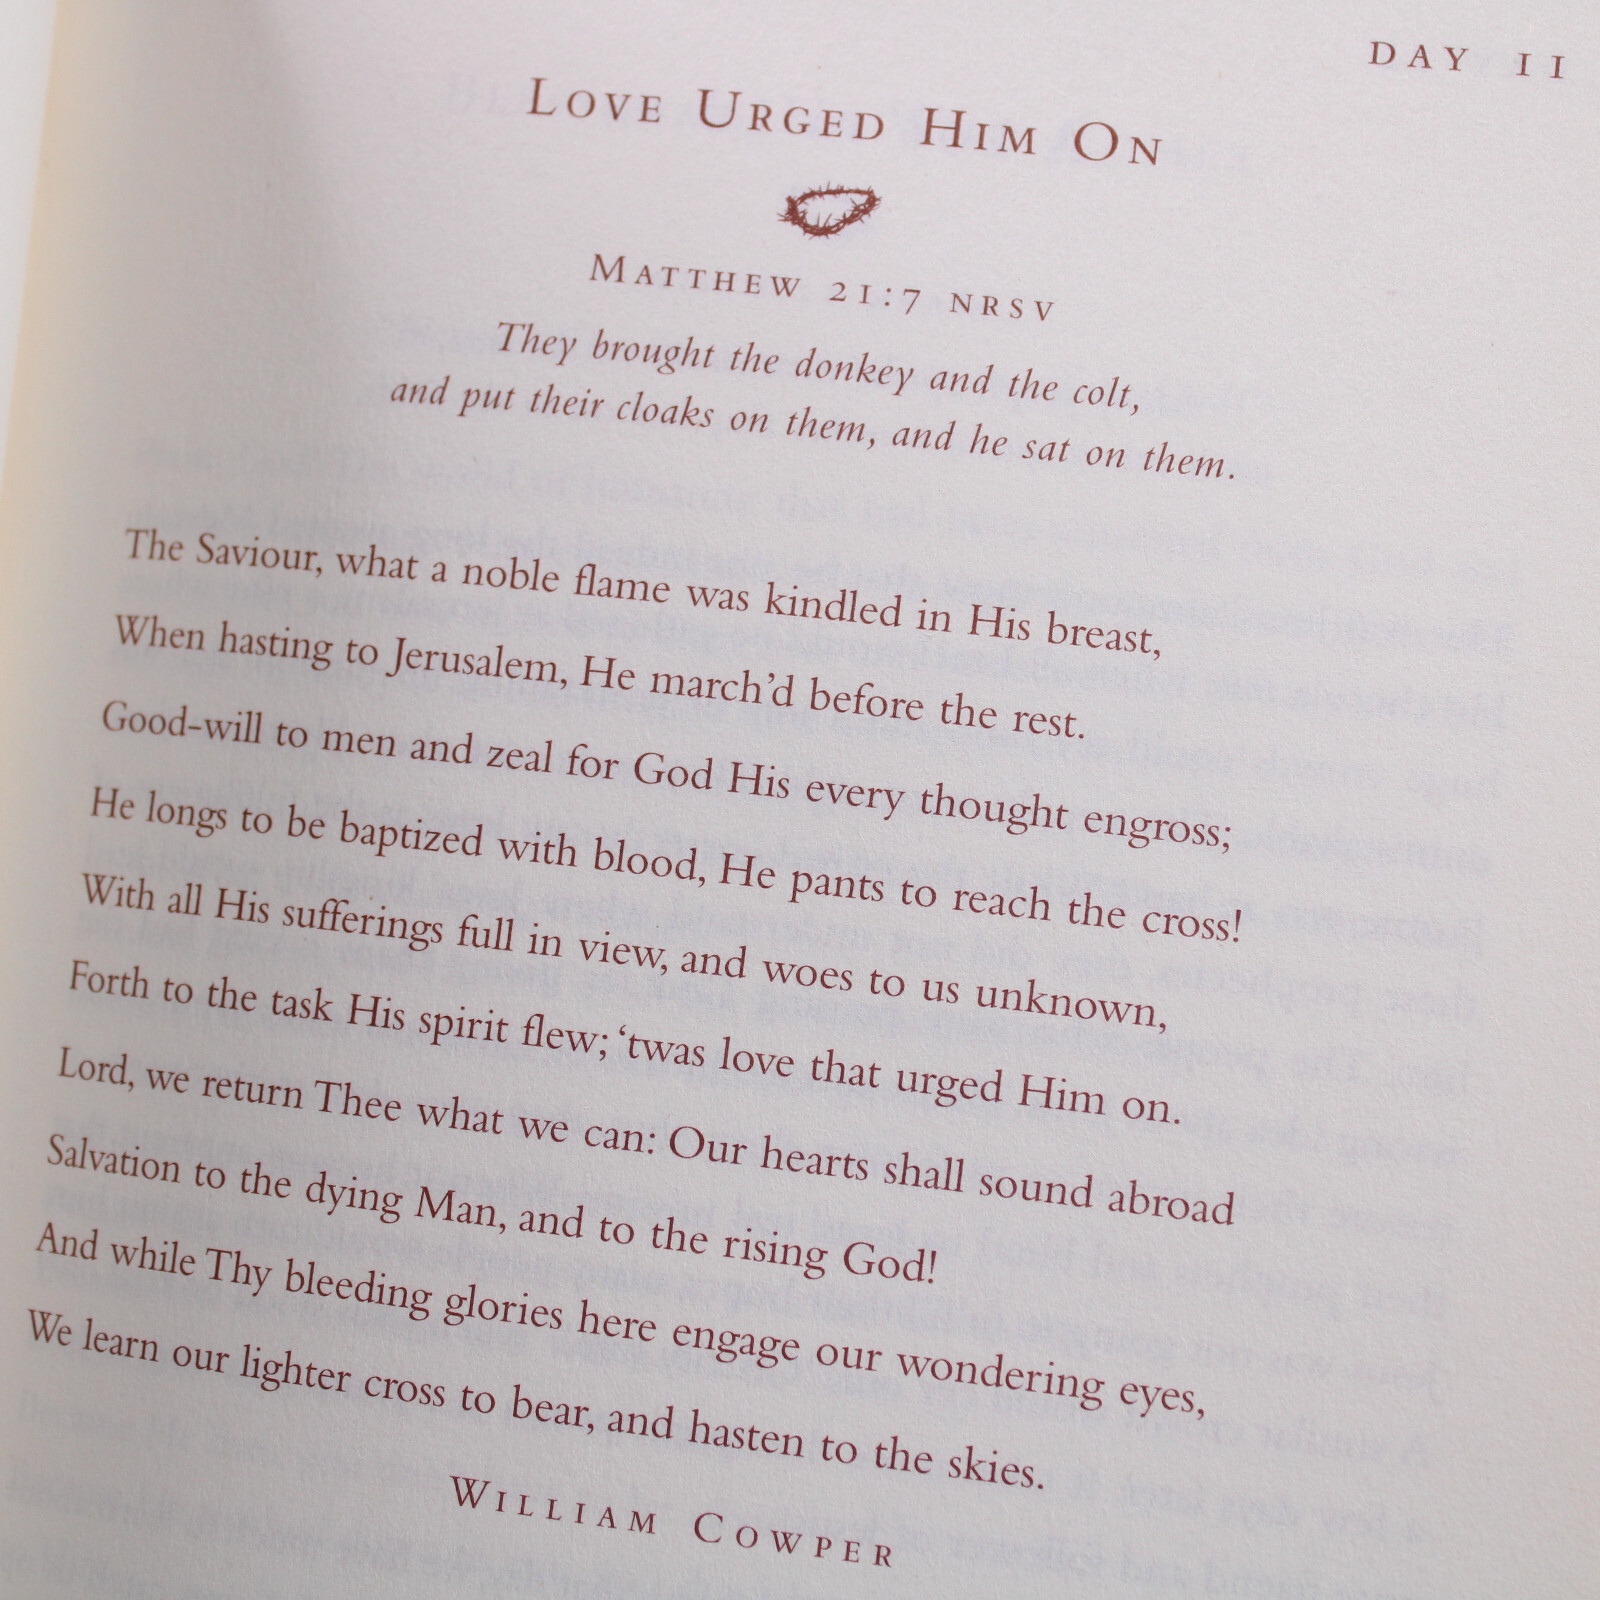 DAY 11
LOVE URGED HIM ON
MATTHEW 21:7 NRSV
They brought the donkey and the colt,
and put their cloaks on them, and he sat on them.
The Saviour, what a noble flame was kindled in His breast,
When hasting to Jerusalem, He march'd before the rest.
Good-will to men and zeal for God His every thought engross;
He longs to be baptized with blood, He pants to reach the cross!
With all His sufferings full in view, and woes to us unknown,
Forth to the task His spirit flew; ‘twas love that urged Him on.
Lord, we return Thee what we can: Our hearts shall sound abroad
Salvation to the dying Man, and to the rising God!
And while Thy bleeding glories here engage our wondering eyes,
We learn our lighter cross to bear, and hasten to the skies.
WILLIAM COWPER